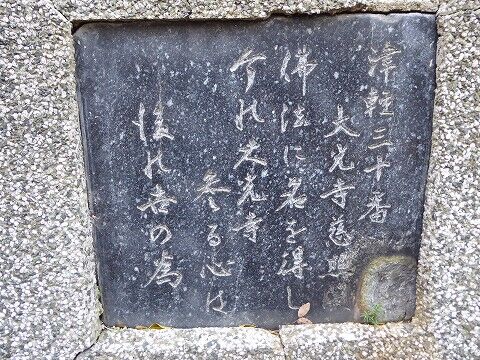 津軽三十番
大光寺慈照
佛法に名を得し
今の大光寺
参る心は
後の世の為